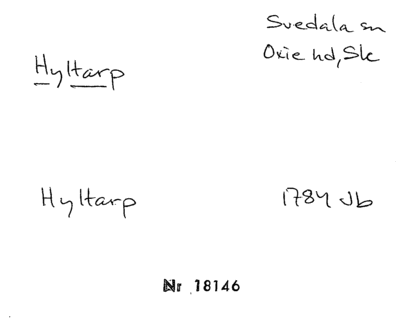 Svedala sn
Oxie hd, Sk
Hyltarp
Hyltarp 1784 Jb
Nr 18146